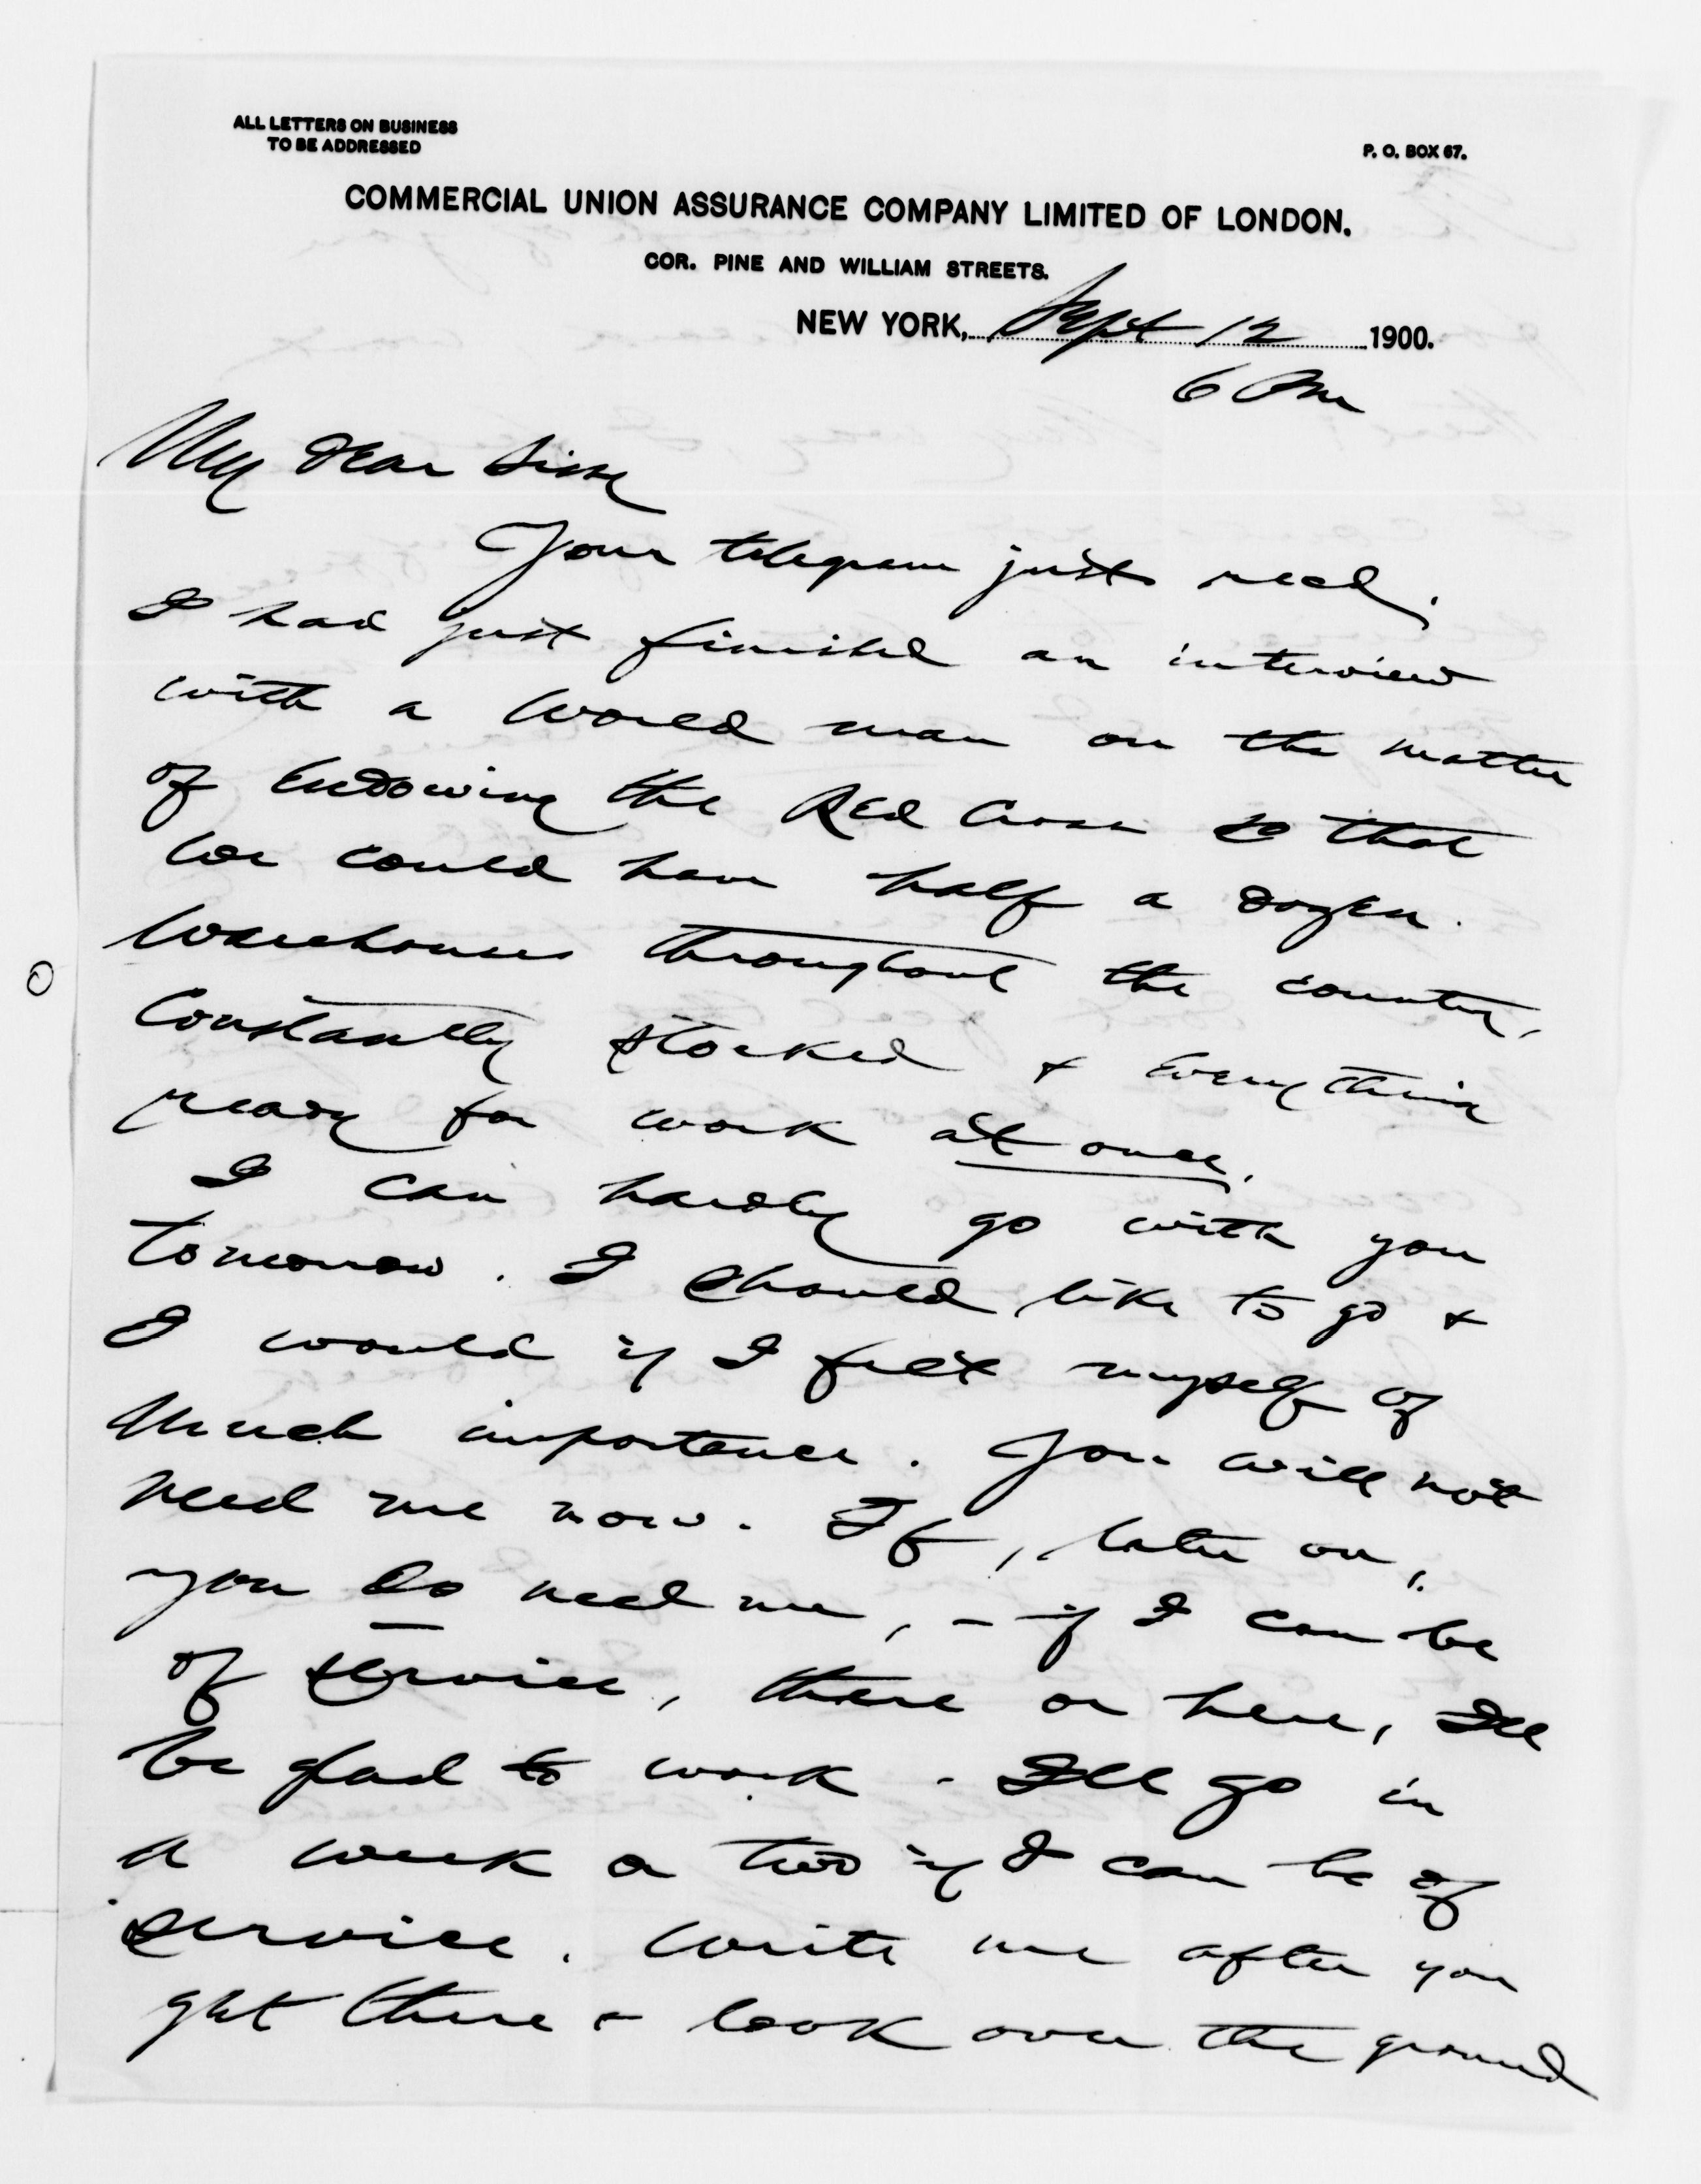 ALL LETTERS ON BUSINESS
TO BE ADDRESSED
P. O. BOX 67.
COMMERCIAL UNION ASSURANCE COMPANY LIMITED OF LONDON.
COR. PINE AND WILLIAM STREETS.
NEW YORK, Sept 12 1900.
6 PM
My dear
Your telegram just recd.
I had just finished an interview
with a World man on the matter
of Endowing the Red Cross so that
we could have half a dozen
Warehouses throughout the country,
Constantly stocked & Everything
ready for work at once.
I can hardly go with you
tomorrow. I should like to go &
I would if I felt myself of
Much importance. You will not
need me now. If, later on,
you do need me, - if I can be
of service, there or here, I'll
be glad to work. I'll go in
a week or two if I can be of
service. Write me after you
get there & look over the ground